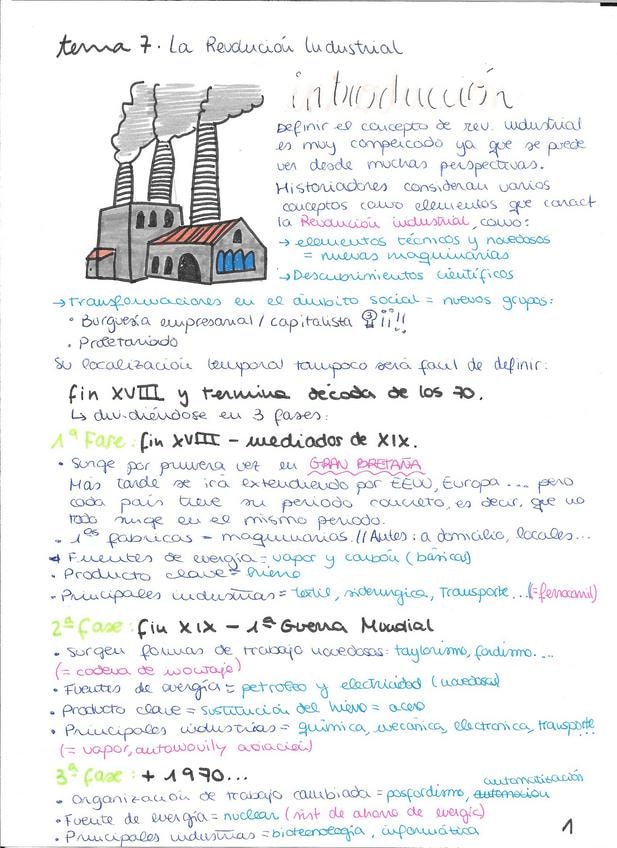 tema 7. La Revolución Industrial
introducción
Definir el concepto de rev. industrial
es muy complicado ya que se puede
ver desde muchas perspectivas.
Historiadores consideran varios
conceptos como elementos que caract
la Revolución industrial, como:
→ elementos técnicos y novedosos
= nuevas maquinarias
→ Descubrimientos científicos
→ Transformaciones en el ámbito social = nuevos grupos:
• Burguesía empresarial / capitalista ¡¡!!
• Proletariado
Su localización temporal tampoco será facil de definir:
fin XVIII y termina década de los 70.
↳ dividiéndose en 3 fases:
1ª Fase: fin XVIII - mediados de XIX.
• Surge por primera vez en GRAN BRETAÑA
Más tarde se irá extendiendo por EEUU, Europa ... pero
cada país tiene su periodo concreto, es decir, que no
todo surge en el mismo periodo.
• 1ᵃˢ fábricas = maquinarias. // Antes: a domicilio, locales...
• Fuentes de energía = vapor y carbón (básicas)
• Producto clave = hierro
• Principales industrias = textil, siderurgica, Transporte... (=ferrocarril)
2ª Fase: fin XIX - 1ª Guerra Mundial
• Surgen formas de trabajo novedosas: taylorismo, fordismo...
(= cadena de montaje)
• Fuentes de energía = petroleo y electricidad (novedosas)
• Producto clave = sustitución del hierro = acero
• Principales industrias = química, mecánica, electronica, transporte...
(= vapor, automovil y aviación)
3ª fase: + 1970...
• Organización de trabajo cambiada = posfordismo, automatización
• Fuente de energía = nuclear (sist de ahorro de energía)
• Principales industrias = biotecnología, informática
1